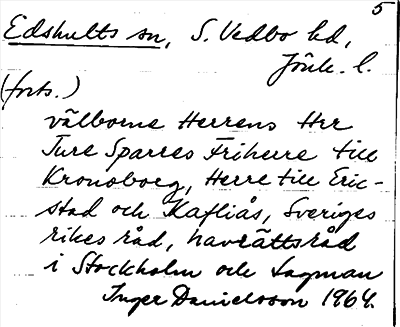 5
Edshults sn, S. Vedbo hd,
Jönk. l.
(forts.)
välborne Herrens Her
Ture Sparres Friherre till
Kronoborg, Herre till Eric-
stad och Kafliås, Sveriges
rikes råd, havrättsråd
i Stockholm och Lagman
Inger Danielsson 1964.